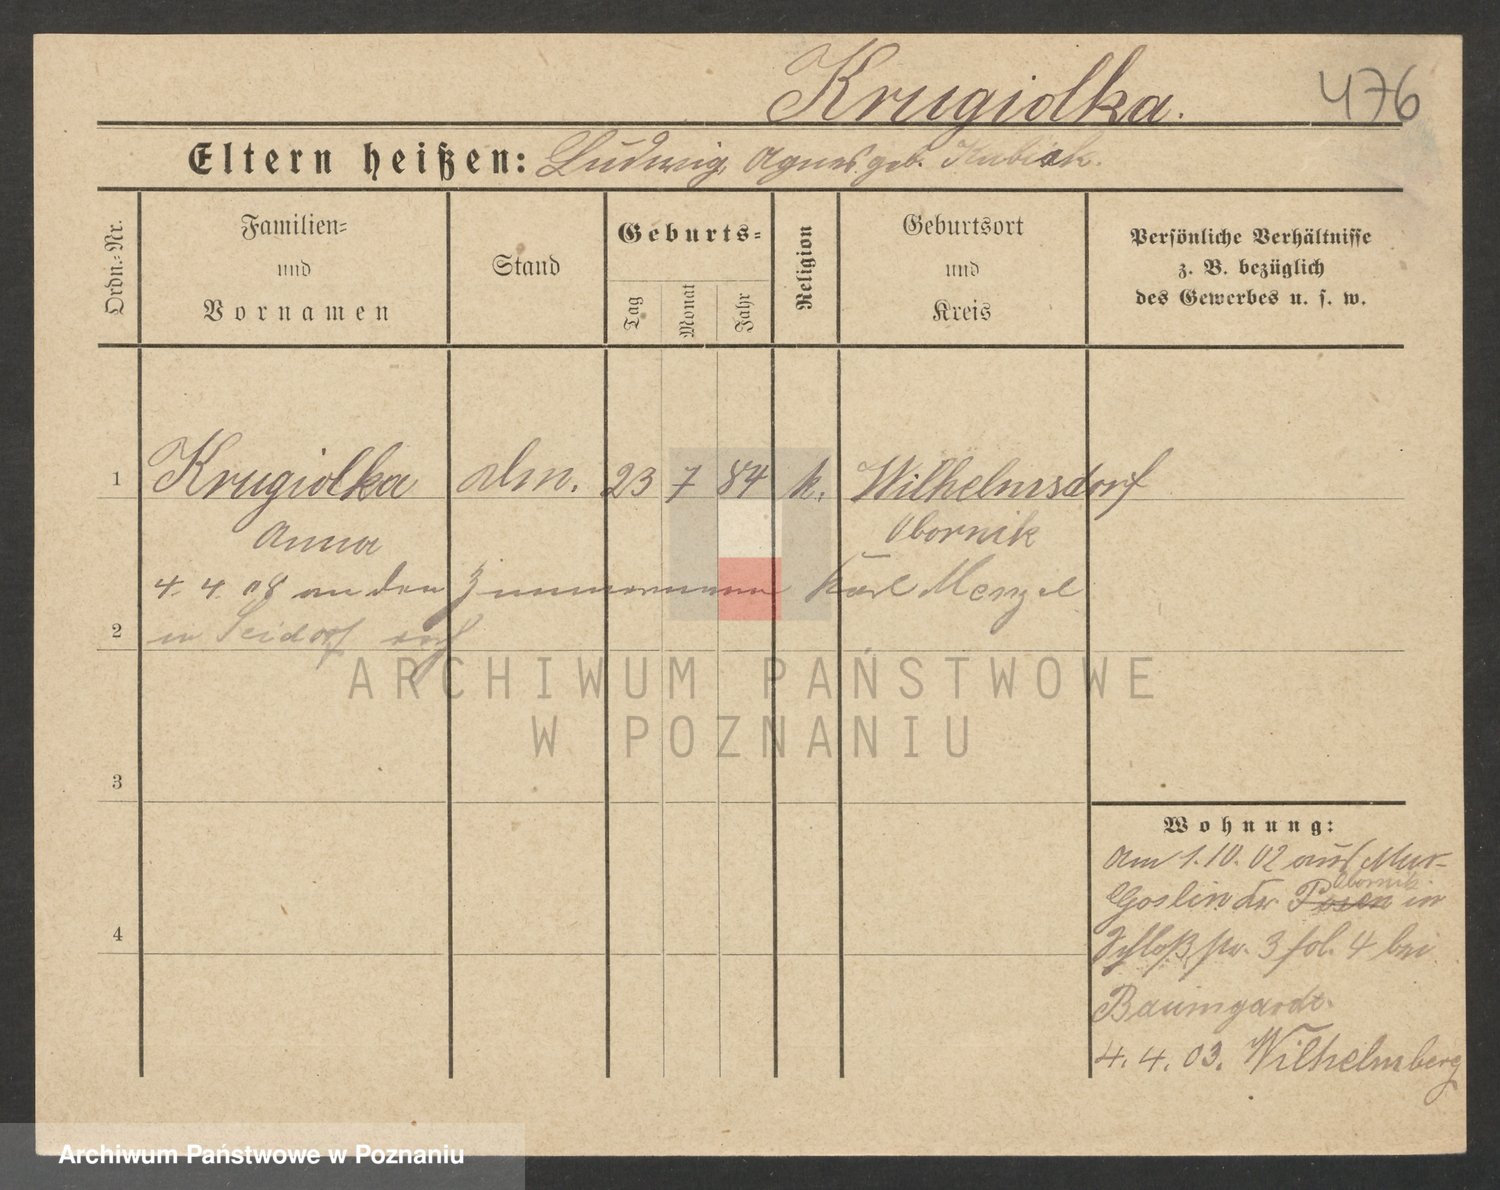 Krugiolka.
476
Eltern heißen: Ludwig, Agnes geb. Kubiak.
Ordn.-Nr.
Familien-
und
Vornamen
Stand
Geburts-
Tag
Monat
Jahr
Religion
Geburtsort
und
Kreis
Persönliche Verhältnisse
z. B. bezüglich
des Gewerbes u. s. w.
1 Krugiolka 23 7 84 k. Wilhelmsdorf
Anna Obornik
4. 4. 08 an den Zimmermann Karl Menzel
2 in Seidorf
ARCHIWUM PAŃSTWOWE
W POZNANIU
3
4
Wohnung:
Am 1.10.02 aus Mur-
Obornik
Goslin Kr. Posen in
Schloßstr. 3 fol. 4 bei
Baumgardt.
4. 4. 03. Wilhelmsberg
Archiwum Państwowe w Poznaniu